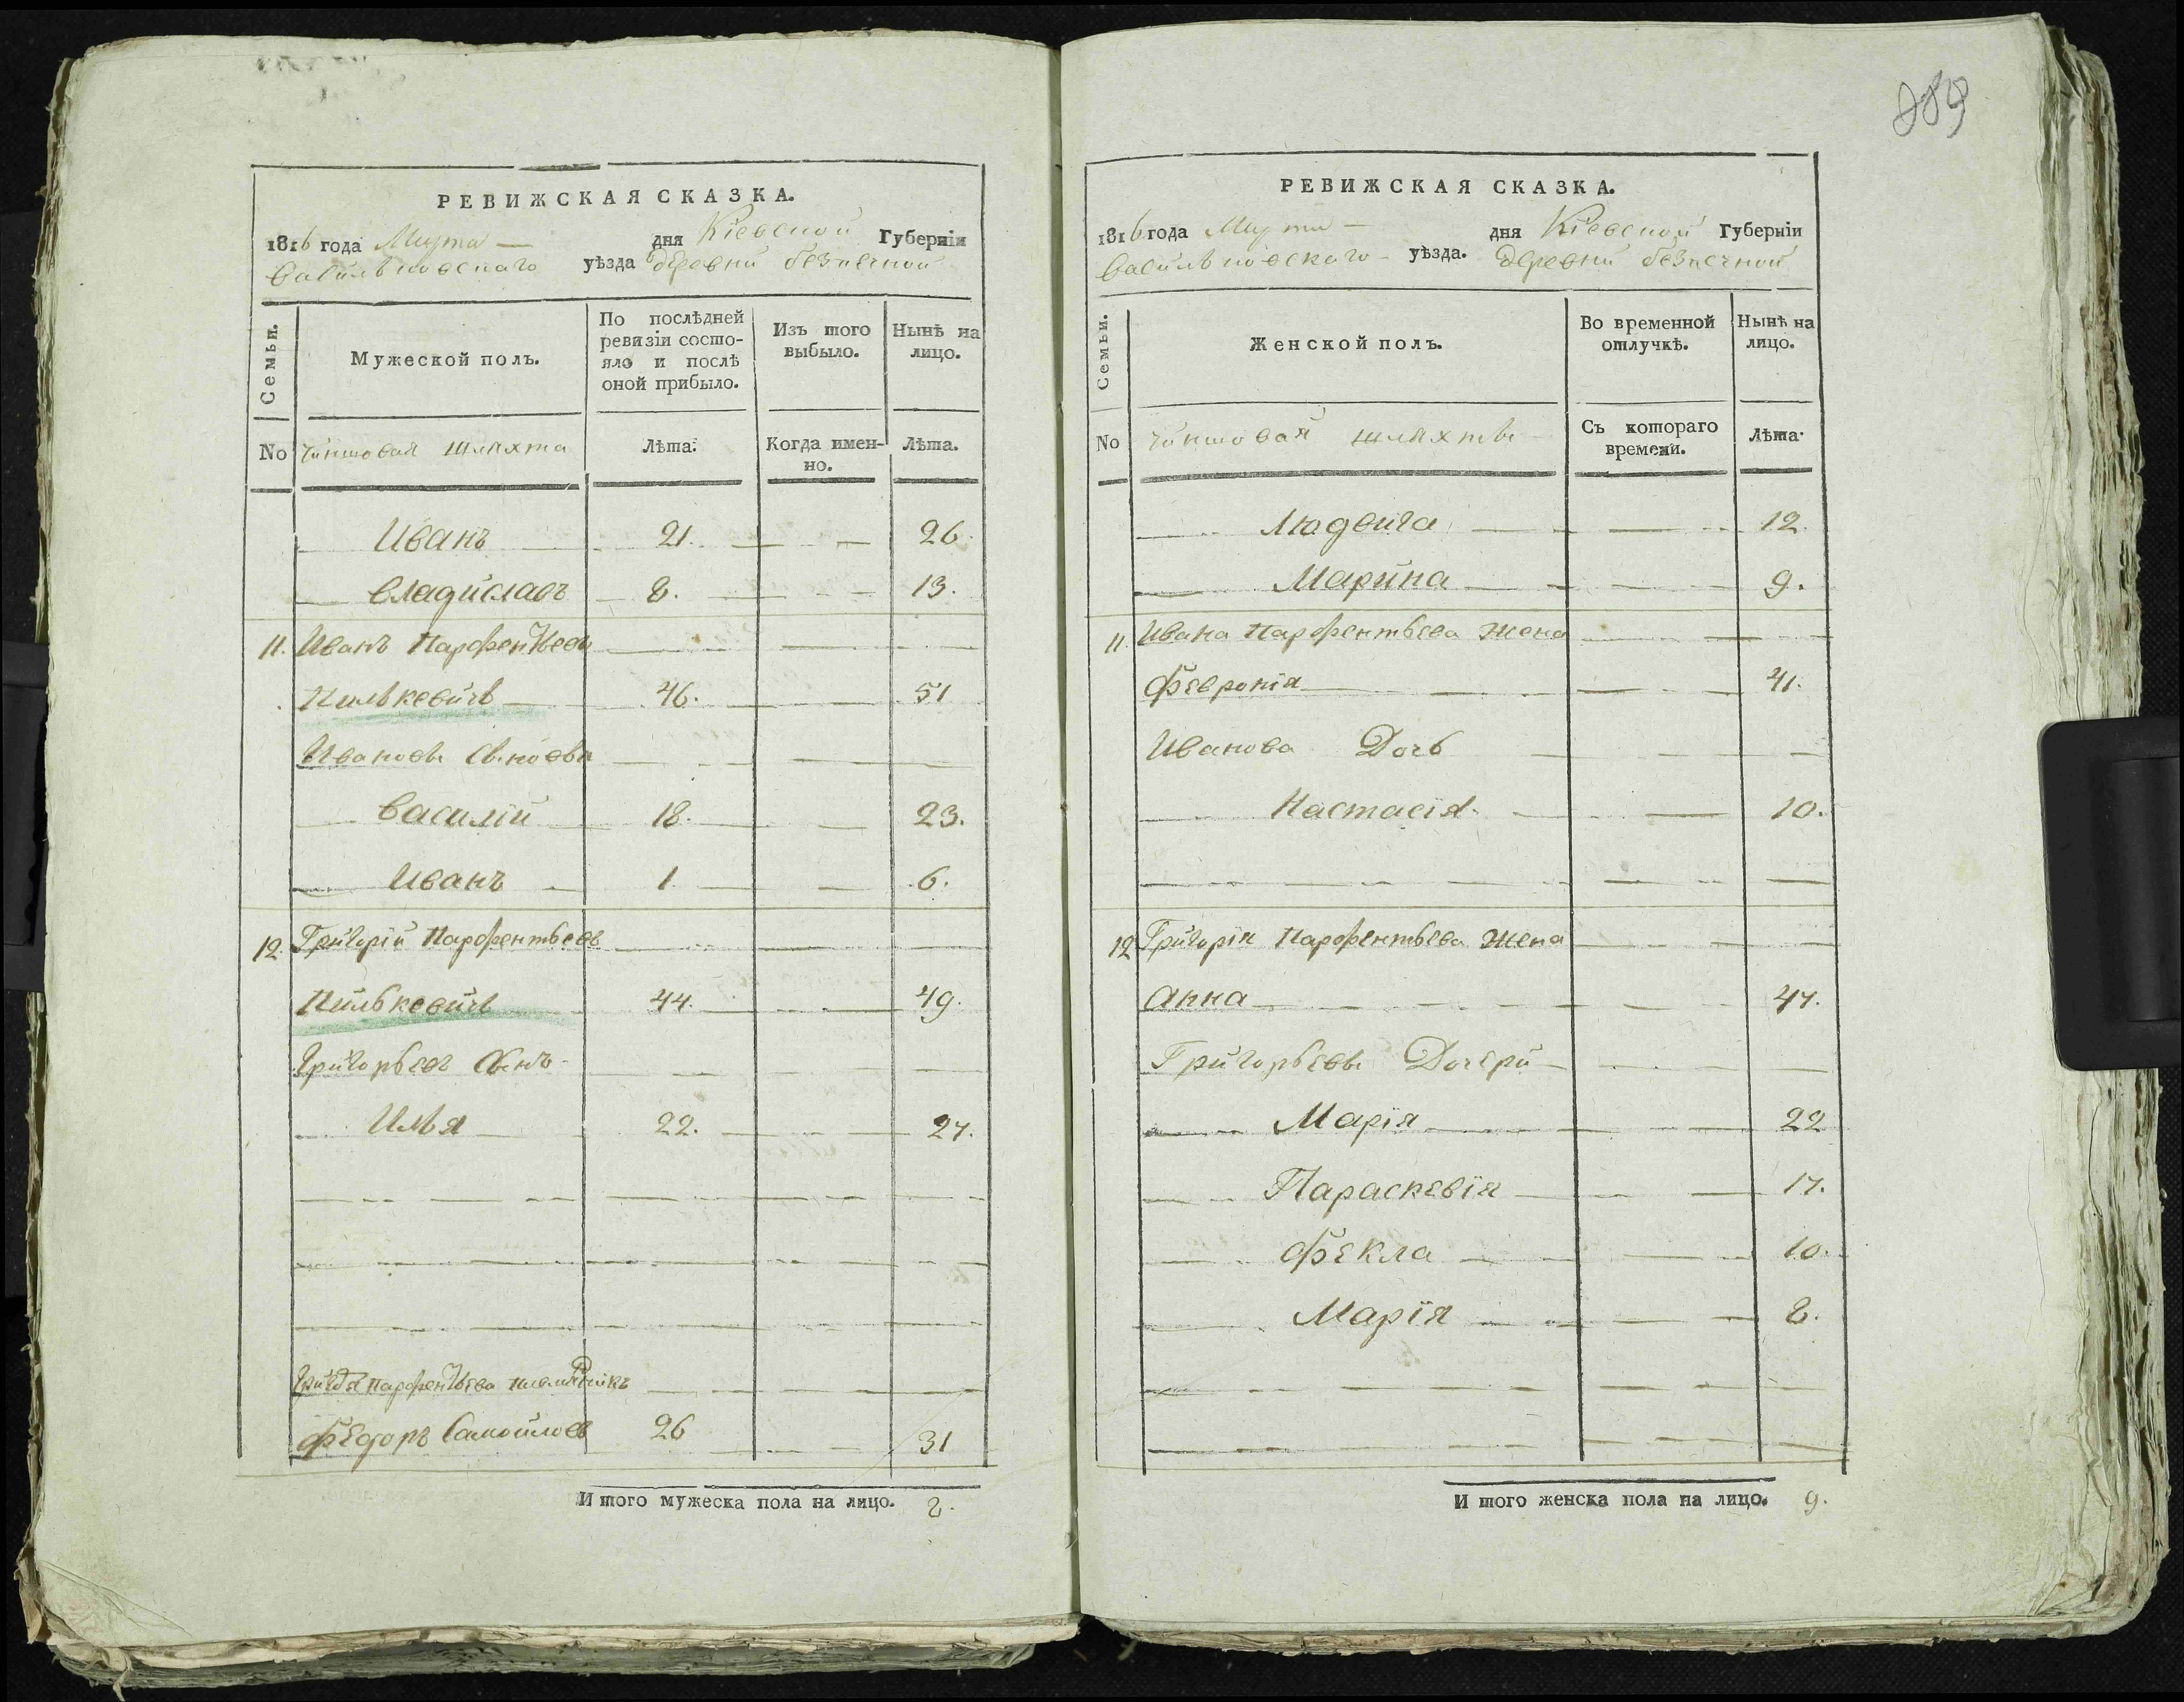 889
РЕВИЖСКАЯ СКАЗКА.
1816 года Марта — дня Кіевской Губерніи
Васильковскаго уѣзда деревни безпечной
Семьи.
Мужеской полъ.
По послѣдней ревизіи состояло и послѣ оной прибыло.
Изъ того выбыло.
Нынѣ на лицо.
No Чиншовая шляхта
Лѣта.
Когда именно.
Лѣта.
Иванъ 21. 26.
Владиславъ 8. 13.
11. Иванъ Парфентьевъ
Пилькевичъ 46. 51
Ивановы сыновья
Василій 18. 23.
Иванъ 1. 6.
12. Григорій Парфентьевъ
Пилькевичъ 44. 49.
Григорьевъ Сынъ
Илья 22. 27.
Парфентьева племянникъ
Федоръ Самойловъ 26 31
И того мужеска пола на лицо. 8.
РЕВИЖСКАЯ СКАЗКА.
1816 года Марта — дня Кіевской Губерніи
Васильковскаго уѣзда. деревни безпечной
Семьи.
Женской полъ.
Во временной отлучкѣ.
Нынѣ на лицо.
No Чиншовая шляхта
Съ котораго времени.
Лѣта.
Людвига 12.
Марина 9.
11. Ивана Парфентьева жена
Февронія 41.
Иванова Дочь
Настасія 10.
12 Григорія Парфентьева жена
Анна 47.
Григорьевы Дочери
Марія 22
Параскевія 17.
Фекла 10.
Марія 8.
И того женска пола на лицо. 9.